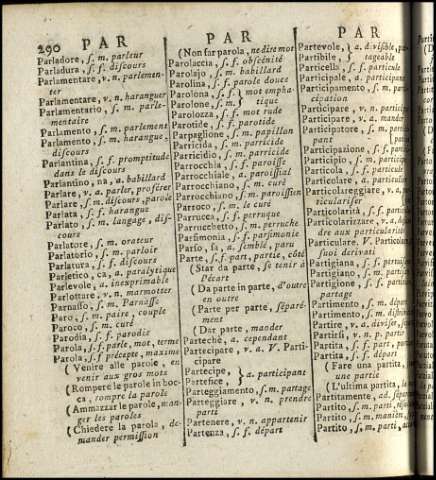 290
PAR
PAR
PAR
Parladore, s. m. parleur
Parladura, s. f. discours
Parlamentare, v. n. parlemen-
ter
Parlamentare, v. n. haranguer
Parlamentario, s. m. parle-
mentaire
Parlamento, s. m. parlement
Parlamento, s. m. harangue,
discours
Parlantina, s. f. promptitude
dans le discours
Parlantino, na, a. babillard
Parlare, v. a. parler, proférer
Parlare, s. m. discours, parole
Parlata, s. f. harangue
Parlato, s. m. langage, dis-
cours
Parlatore, s. m. orateur
Parlatorio, s. m. parloir
Parlatura, s. f. discours
Parletico, ca, a. paralytique
Parlevole, a. inexprimable
Parlottare, v. n. marmotter
Parnasso, s. m. Parnasse
Paro, s. m. paire, couple
Paroco, s. m. curé
Parodia, s. f. parodie
Parola, s. f. parle, mot, terme
Parola, s. f. précepte, maxime
(Venire alle parole, en
venir aux gros mots
(Rompere le parole in boc-
ca, rompre la parole
(Ammazzar le parole, man-
ger les paroles
(Chiedere la parola, de-
mander permission
(Non far parola, ne dire mot
Parolaccia, s. f. obscénité
Parolajo, s. m. babillard
Parolina, s. f. parole douce
Parolona, s. f. } mot empha-
Parolone, s. m. } tique
Parolozza, s. f. mot rude
Parotide, s. f. parotide
Parpaglione, s. m. papillon
Parricida, s. m. parricide
Parricidio, s. m. parricide
Parrocchia, s. f. paroisse
Parrocchiale, a. paroissial
Parrocchiano, s. m. curé
Parrocchiano, s. m. paroissien
Parroco, s. m. le curé
Parrucca, s. f. perruque
Parrucchetto, s. m. perruche
Parsimonia, s. f. parsimonie
Parso, sa, a. semblé, paru
Parte, s. f. part, partie, côté
(Star da parte, se tenir à
l'écart
(Da parte in parte, d'outre
en outre
(Parte per parte, séparé-
ment
(Dar parte, mander
Partechè, a. cependant
Partecipare, v. a. V. Parti-
cipare
Partecipe, } a. participant
Partefice, }
Parteggiamento, s. m. partage
Parteggiare, v. n. prendre
parti
Partenere, v. n. appartenir
Partenza, s. f. départ
Partevole, } a. divisible, par-
Partibile, } tageable
Particella, s. f. particule
Participale, a. participant
Participamento, s. m. parti-
cipation
Participare, v. n. participer
Participare, v. a. mander
Participatore, s. m. partici-
pant
Participazione, s. f.
Participio, s. m. participe
Particola, s. f. particule
Particolare, a. particulier
Particolareggiare, v. a. par-
ticulariser
Particolarità, s. f. particularité
Particolarizzare, v. a.
dre aux particularités
Particolare, V. Particolar
suoi derivati
Partigiana, s. f. pertuisane
Partigiano, s. m. partisan
Partigione, s. f. partition,
partage
Partimento, s. m. départ
Partimento, s. m. division
Partire, v. a. diviser
Partire, v. n. partir
Partita, s. f. partie
Partita, s. f. départ
(Fare una partita,
une partie
(L'ultima partita, la mort
Partitamente, ad. séparément
Partito, s. m. parti
Partito, s. m. parti